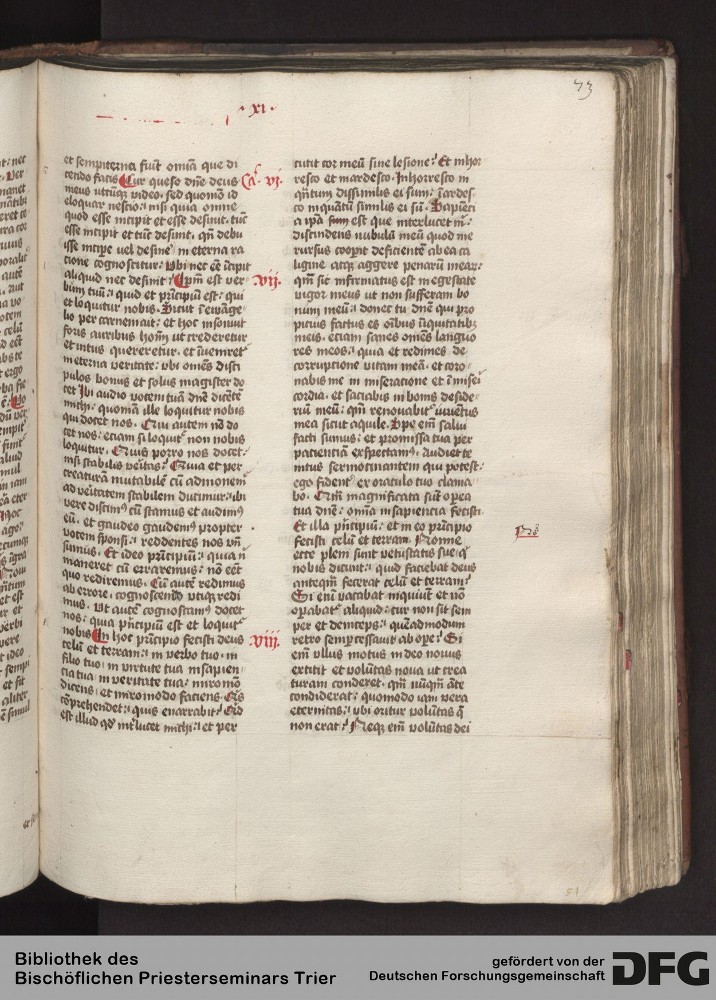 73
· xi ·
et sempiterna fiūt omīa que di
cendo facis Cur queso dn̄e deus
Ca. vi.
meus utcūqꝫ video, sed quomō id
eloquar nescio: nisi quia omne
quod esse incipit et esse desinit, tūc
esse incipit et tūc desinit, qn̄ debu
isse incipe vel desine in eterna ra
cione cognoscitur: ubi nec eē īcipit
aliquid nec desinit: Ipm̄ est ver
vij.
bum tuū: quid et prīcipiū est: qui
et loquitur nobis. Sicut ī ewāge
lio per carnem ait: et hoc insonuit
foris auribus homī ut crederetur
et intus quereretur, et īueniret
in eterna veritate: ubi omēs disci
pulos bonus et solus magister do
cet Ibi audio vocem tuā dn̄e dicētē
michi: quoniā ille loquitur nobis
qui docet nos. Qui autem nō do
cet nos: eciam si loquit non nobis
loquitur. Quis porro nos docet:
nisi stabilis veritas: Quia et per
creaturā mutabilē cū admonem
ad veritatem stabilem ducimur: ibi
vere discim⁹ cū stamus et audim⁹
eū, et gaudeo gaudem⁹ propter
vocem sponsi: reddentes nos vn̄
sumus. Et ideo prīcipiū: quia n
maneret cū erraremus: nō eēt
quo rediremus. Cū autē redimus
ab errore, cognoscendo utiqꝫ redi
mus. Ut autē cognoscam⁹ docet
nos: quia prīcipiū est et loquit
nobis In hoc prīcipio fecisti deus
viij.
celū et terram: in verbo tuo, in
filio tuo, in virtute tua in sapien
cia tua in veritate tua: miro mō
dicens, et miro modo faciens. Q̄s
cōprehendet: quis enarrabit: Q̄d
est illud qd̄ int̄lucet michi: et per
cutit cor meū sine lesione: Et inhor
resco et inardesco. Inhorresco in
qn̄tum dissimilis ei sum: īardes
co inquātū similis ei sū. Sapieci
a ipā sum est que interlucet m̄:
discindens nubilū meū quod me
rursus cooperit deficientē ab ea ca
ligine atqꝫ aggere penarū mear:
qm̄ sic infirmatus est in egestate
vigor meus ut non sufferam bo
num meū: donec tu dn̄e qui pro
picius factus es oībus īiquitatibꝫ
meis, eciam sanes omēs languo
res meos: quia et redimes de
corrupcione vitam meā, et coro
nabis me in miseracione et ī misei
cordia, et saciabis in bonis deside
riū meū: qm̄ renovabit iuuētus
mea sicut aquile. Spe em̄ salui
facti sumus: et promissa tua per
pacienciā exspectam⁹. Audiet te
intus sermocinantem qui potest:
ego fident ex oraculo tuo clama
bo. Qm̄ magnificata sūt opera
tua dn̄e: omīa in sapiencia fecisti
Et illa prīcipiū: et in eo prīcipio
No
fecisti celū et terram. Nonne
ecce pleni sunt vetustatis sue q
nobis dicunt: quid faciebat deus
anteqm̄ faceret celū et terram:
Si em̄ vacabat inquiūt et nō
opabat aliquid: cur non sic sem
per et deinceps: quēadmodum
retro semp cessavit ab ope: Si
em̄ ullus motus in deo novus
extitit et volūtas nova ut crea
turam conderet, qm̄ nūqm̄ āte
condiderat: quomodo iam vera
eternitas: ubi oritur volūtas q̄
non erat: Neqꝫ em̄ volūtas dei
51
Bibliothek des
Bischöflichen Priesterseminars Trier
gefördert von der
Deutschen Forschungsgemeinschaft
DFG